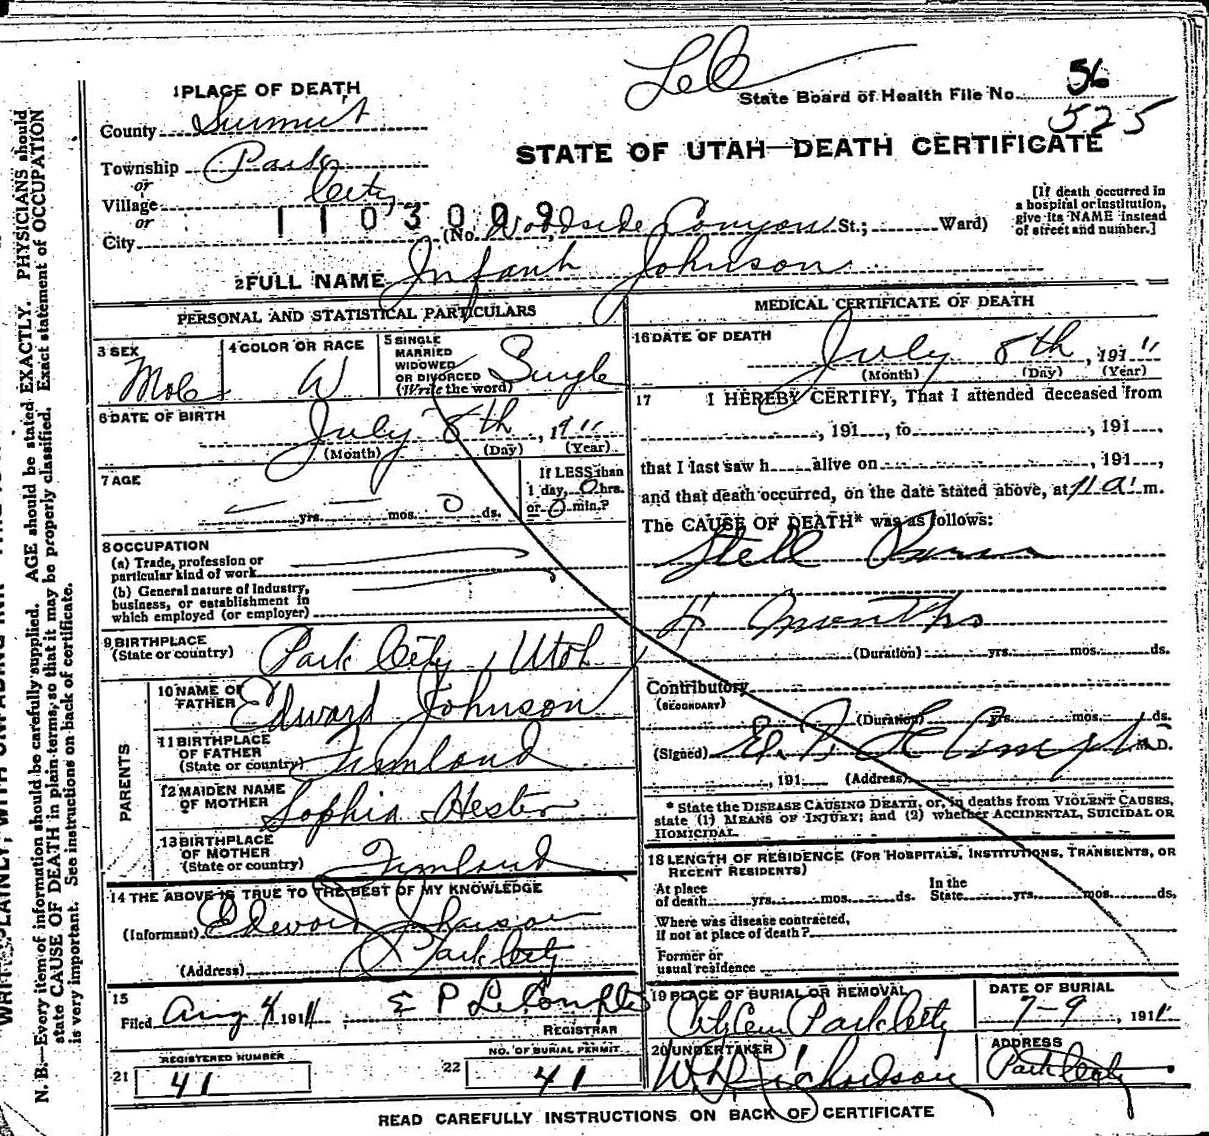 Lel
56
1 PLACE OF DEATH
State Board of Health File No. 525
County Summit
STATE OF UTAH—DEATH CERTIFICATE
Township Park
or
Village City
or
1103009
City (No. Woodside Canyon St.; Ward)
[If death occurred in
a hospital or institution,
give its NAME instead
of street and number.]
2 FULL NAME Infant Johnson
PERSONAL AND STATISTICAL PARTICULARS
3 SEX Male
4 COLOR OR RACE W
5 SINGLE
MARRIED
WIDOWED
OR DIVORCED
(Write the word) Single
6 DATE OF BIRTH
July 8th, 1911
(Month) (Day) (Year)
7 AGE
yrs. mos. 0 ds.
If LESS than
1 day, 0 hrs.
or 0 min.?
8 OCCUPATION
(a) Trade, profession or
particular kind of work
(b) General nature of Industry,
business, or establishment in
which employed (or employer)
9 BIRTHPLACE
(State or country) Park City, Utah
PARENTS
10 NAME OF
FATHER Edward Johnson
11 BIRTHPLACE
OF FATHER
(State or country) Finnland
12 MAIDEN NAME
OF MOTHER Sophia Hester
13 BIRTHPLACE
OF MOTHER
(State or country) Finnland
14 THE ABOVE IS TRUE TO THE BEST OF MY KNOWLEDGE
(Informant) Edward Johnson
(Address) Park City
15
Filed Aug 4 1911 E P LeCompte
REGISTRAR
REGISTERED NUMBER
21 41
NO. OF BURIAL PERMIT
22 41
MEDICAL CERTIFICATE OF DEATH
16 DATE OF DEATH
July 8th, 1911
(Month) (Day) (Year)
17 I HEREBY CERTIFY, That I attended deceased from
, 191 , to , 191 ,
that I last saw h alive on , 191 ,
and that death occurred, on the date stated above, at 11 a. m.
The CAUSE OF DEATH* was as follows:
Still Born
4 months
(Duration) yrs. mos. ds.
Contributory
(SECONDARY)
(Duration) yrs. mos. ds.
(Signed) E. P. LeCompte M.D.
, 191 (Address)
* State the DISEASE CAUSING DEATH, or, in deaths from VIOLENT CAUSES,
state (1) MEANS OF INJURY; and (2) whether ACCIDENTAL, SUICIDAL OR
HOMICIDAL.
18 LENGTH OF RESIDENCE (FOR HOSPITALS, INSTITUTIONS, TRANSIENTS, OR
RECENT RESIDENTS)
At place
of death yrs. mos. ds.
In the
State yrs. mos. ds.
Where was disease contracted,
if not at place of death?
Former or
usual residence
19 PLACE OF BURIAL OR REMOVAL
City Cem Park City
DATE OF BURIAL
7-9, 1911
20 UNDERTAKER
W D Richardson
ADDRESS
Park City
READ CAREFULLY INSTRUCTIONS ON BACK OF CERTIFICATE
N. B.—Every item of information should be carefully supplied. AGE should be stated EXACTLY. PHYSICIANS should
state CAUSE OF DEATH in plain terms, so that it may be properly classified. Exact statement of OCCUPATION
is very important. See instructions on back of certificate.